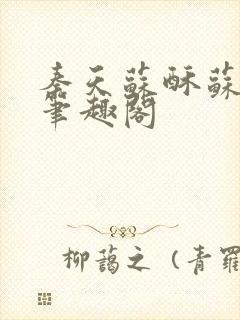 秦天蘇酥蘇
筆趣閣
柳藹之（青羅